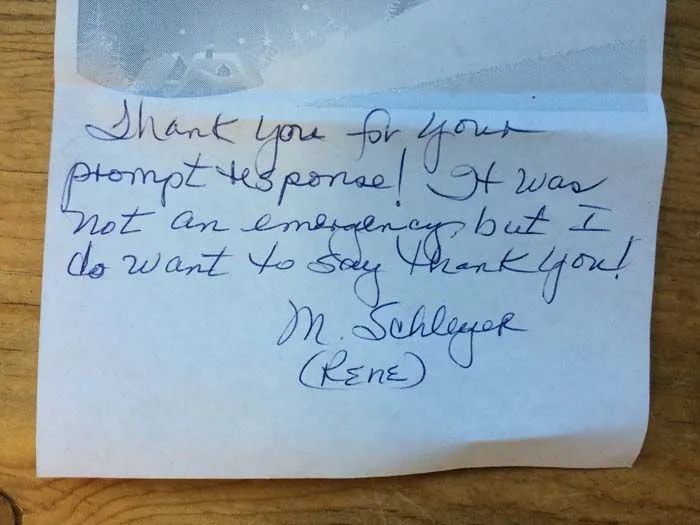 Thank you for your
prompt response! It was
not an emergency, but I
do want to say thank you!
M. Schleyer
(Rene)